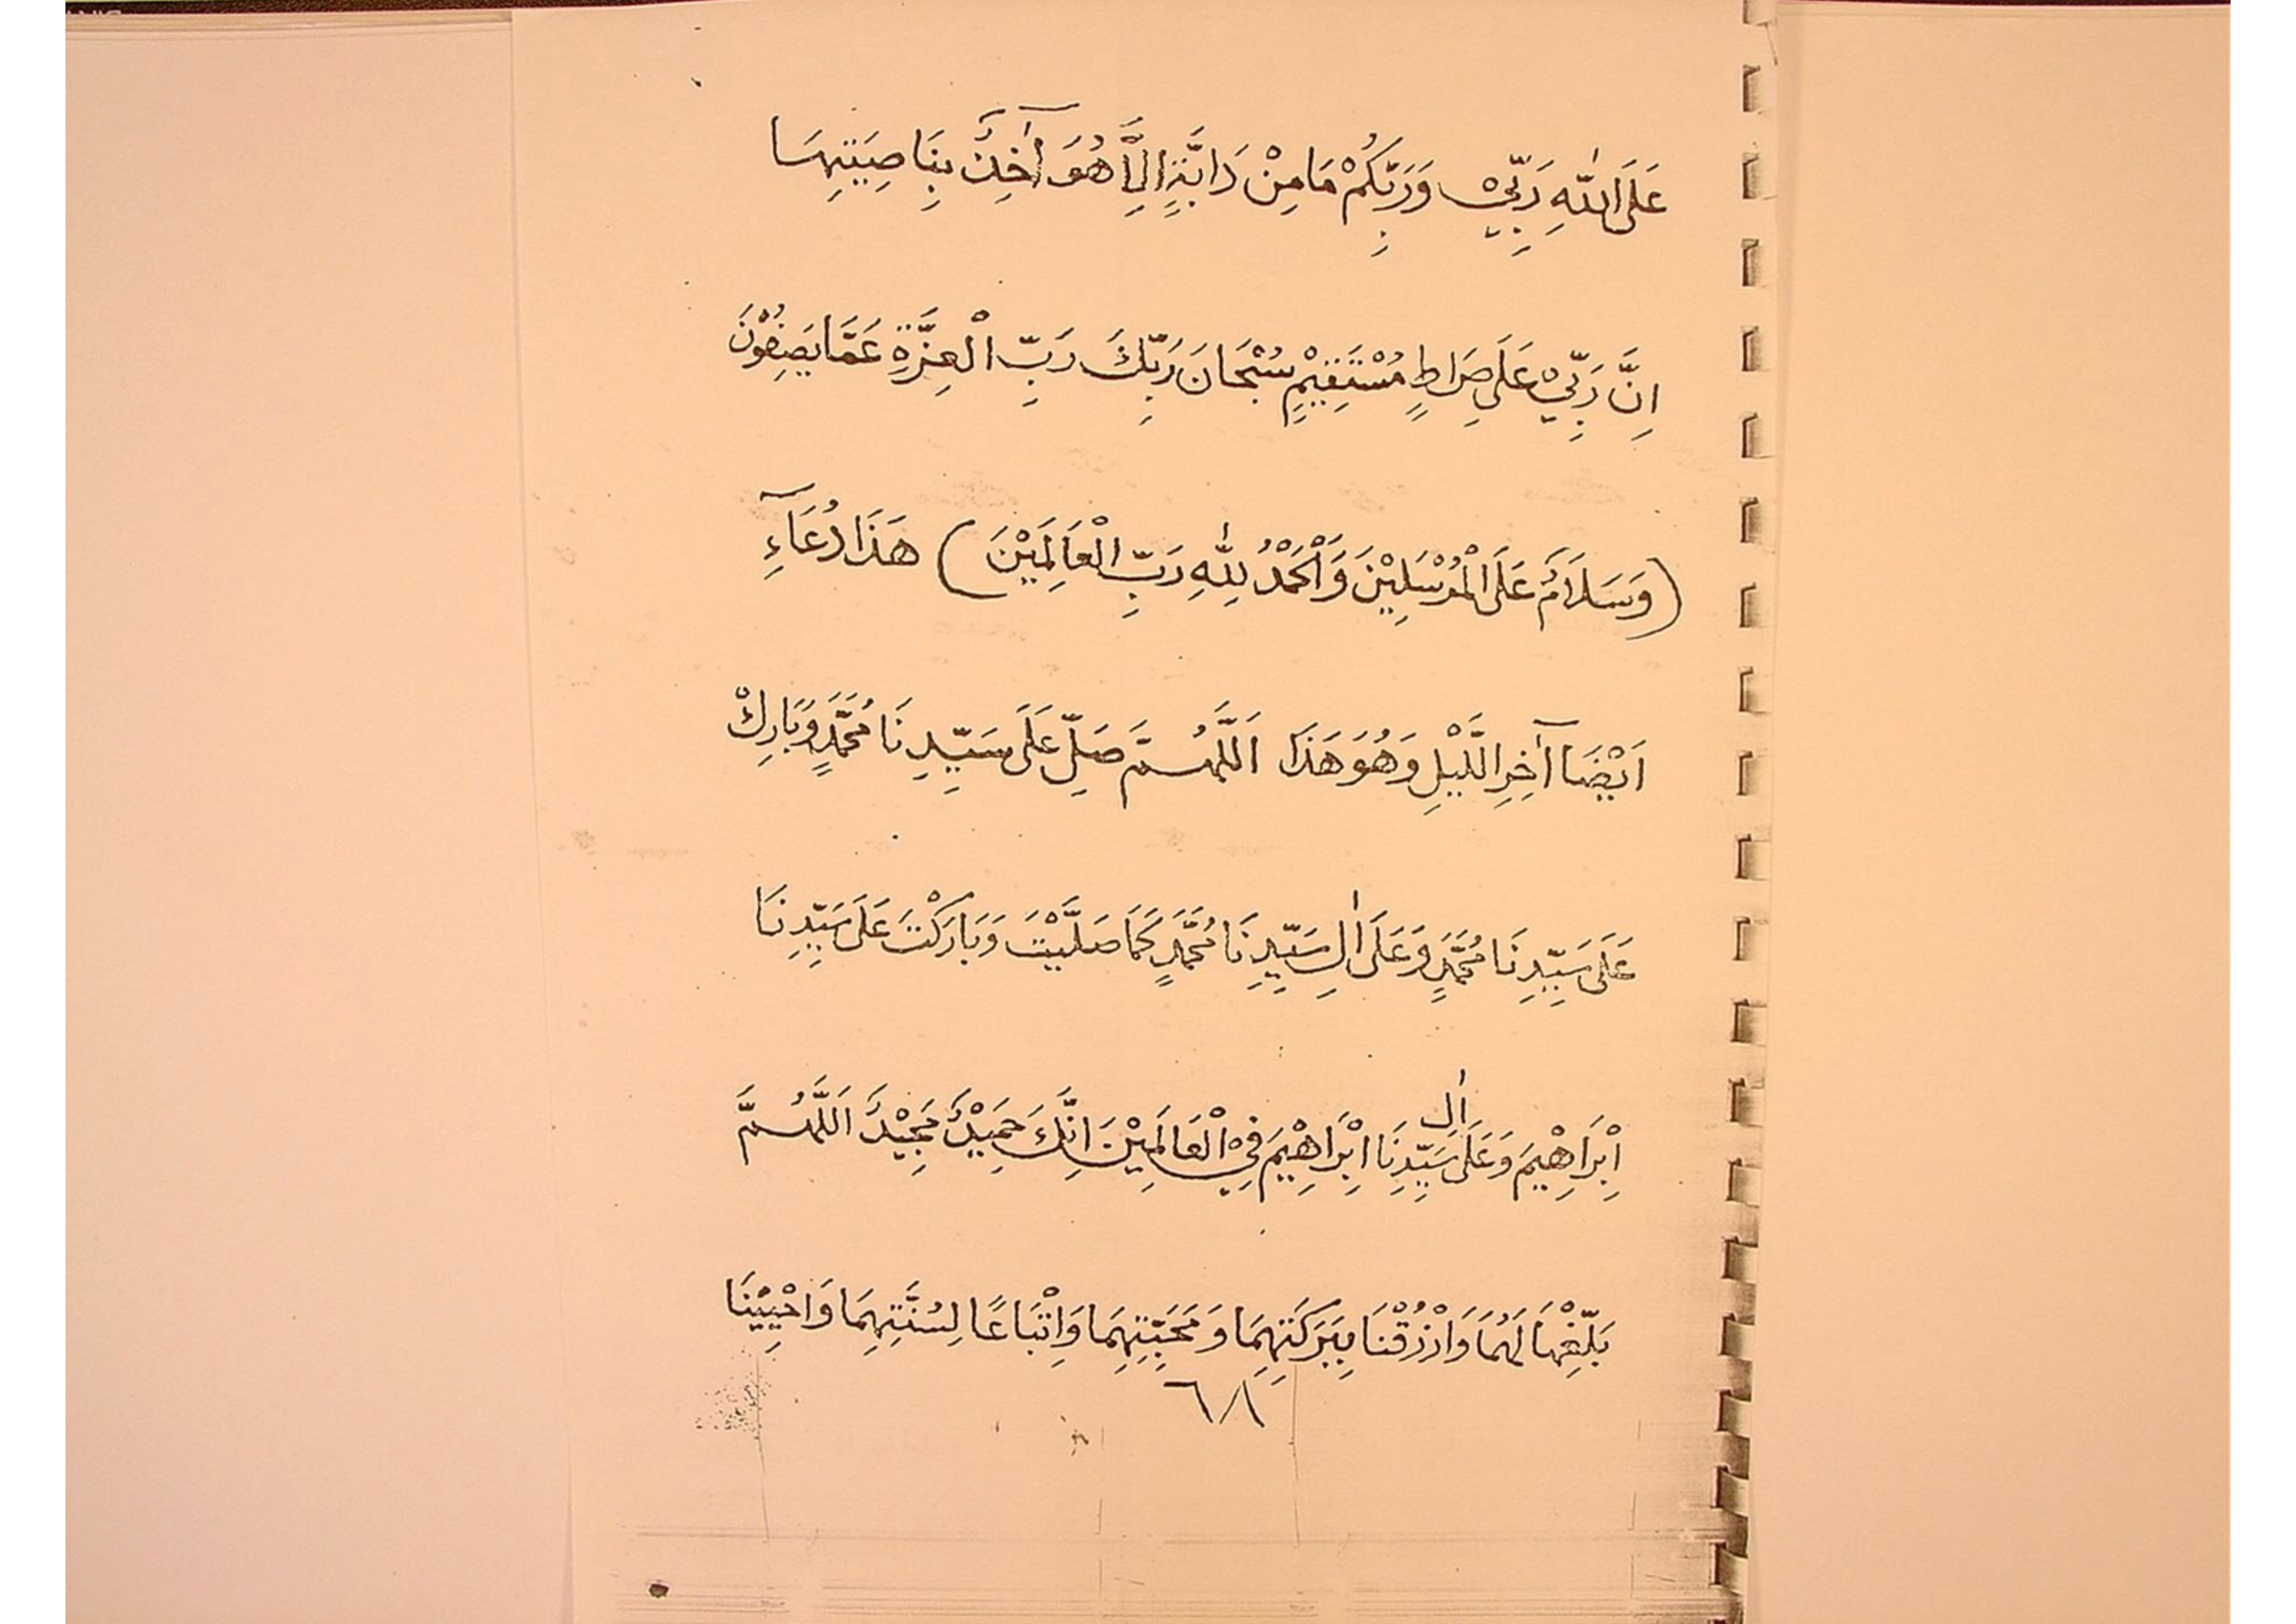 عَلَى اللّٰهِ رَبِّيْ وَرَبِّكُمْ مَامِنْ دَابَّةٍ اِلَّا هُوَ آخِذٌ بِنَاصِيَتِهَا
اِنَّ رَبِّيْ عَلَى صِرَاطٍ مُسْتَقِيْمٍ سُبْحَانَ رَبِّكَ رَبِّ الْعِزَّةِ عَمَّا يَصِفُوْنَ
(وَسَلَامٌ عَلَى الْمُرْسَلِيْنَ وَالْحَمْدُ لِلّٰهِ رَبِّ الْعَالَمِيْنَ) هَذَا دُعَآءِ
اَيْضًا آخِرِ الَّليْلِ وَهُوَ هَذَا اَللَّهُمَّ صَلِّ عَلَى سَيِّدِنَا مُحَمَّدٍ وَبَارِكْ
عَلَى سَيِّدِنَا مُحَمَّدٍ وَعَلَى اٰلِ سَيِّدِنَا مُحَمَّدٍ كَمَا صَلَّيْتَ وَبَارَكْتَ عَلَى سَيِّدِنَا
اِبْرَاهِيْمَ وَعَلَى اٰلِ سَيِّدِنَا اِبْرَاهِيْمَ فِيْ الْعَالَمِيْنَ اِنَّكَ حَمِيْدٌ مَجِيْدٌ اَللَّهُمَّ
بَلِّغْهَا لَهُمَا وَارْزُقْنَا بِبَرَكَتِهِمَا وَمَحَبَّتِهِمَا وَاِتْبَاعًا لِسُنَّتِهِمَا وَاحْيِيْنَا
٦٨